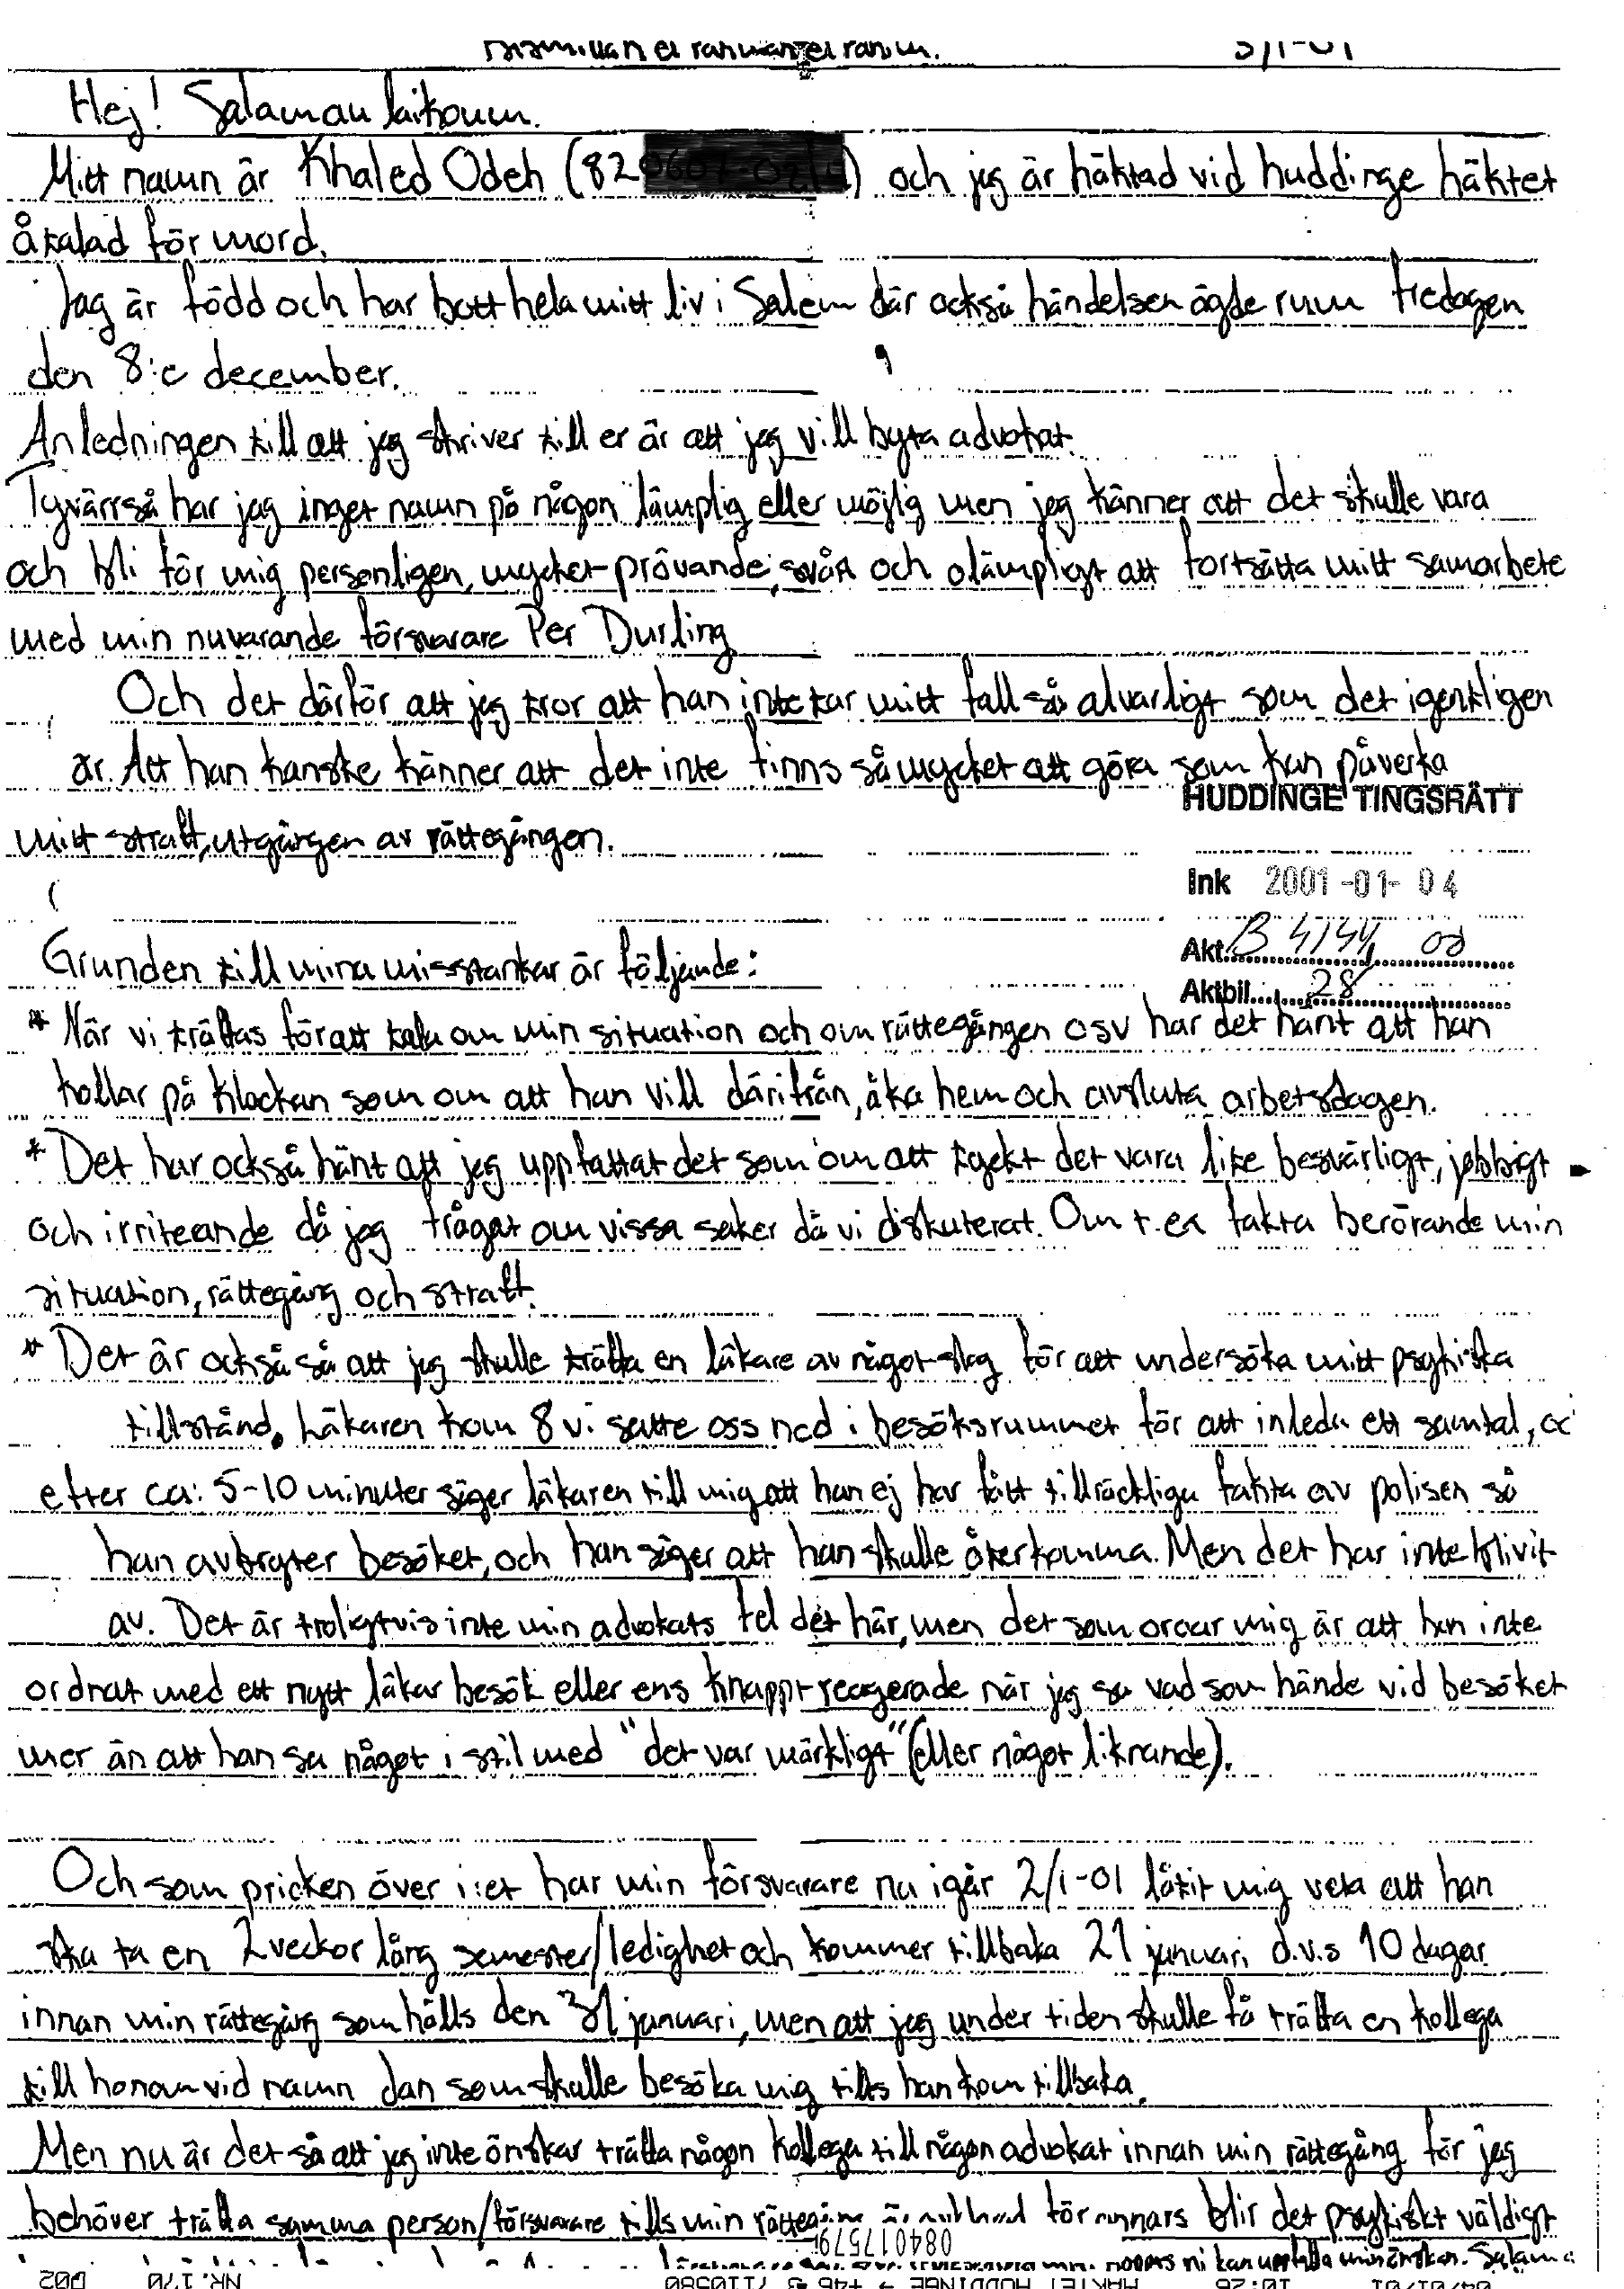 Bismillah el rahman el rahim. 3/1-01
Hej! Salamau laikoum.
Mitt namn är Khaled Odeh (82 ) och jag är häktad vid huddinge häktet
åkalad för mord.
Jag är född och har bott hela mitt liv i Salem där också händelsen ägde rum fredagen
den 8:e december.
Anledningen till att jag skriver till er är att jag vill byta advokat.
Tyvärr så har jag inget namn på någon lämplig eller möjlig men jag känner att det skulle vara
och bli för mig personligen, mycket prövande, svårt och olämpligt att fortsätta mitt samarbete
med min nuvarande försvarare Per Durling
Och det därför att jag tror att han inte tar mitt fall så alvarligt som det igentligen
är. Att han kanske känner att det inte finns så mycket att göra som kan påverka
HUDDINGE TINGSRÄTT
mitt straff, utgången av rättegången.
Ink 2001-01-04
Akt B 4144 00
Grunden till mina misstankar är följande:
Aktbil 28
* När vi träffas för att tala om min situation och om rättegången osv har det hänt att han
kollar på klockan som om att han vill därifrån, åka hem och avsluta arbetsdagen.
* Det har också hänt att jag uppfattat det som om att tyckt det vara lite besvärligt, jobbigt
och irriteande då jag frågat om vissa saker då vi diskuterat. Om t.ex fakta berörande min
situation, rättegång och straff.
* Det är också så att jag skulle träffa en läkare av något slag för att undersöka mitt psykiska
tillstånd. Läkaren kom & vi satte oss ned i besöksrummet för att inleda ett samtal, oc
efter ca: 5-10 minuter säger läkaren till mig att han ej har fått tillräckliga fakta av polisen så
han avbryter besöket, och han säger att han skulle återkomma. Men det har inte blivit
av. Det är troligtvis inte min advokats fel det här, men det som oroar mig är att han inte
ordnat med ett nytt läkar besök eller ens knappt reagerade när jag sa vad som hände vid besöket
mer än att han sa något i stil med "det var märkligt" (eller något liknande).
Och som pricken över i:et har min försvarare nu igår 2/1-01 låtit mig veta att han
ska ta en 2 veckor lång semester/ledighet och kommer tillbaka 21 januari d.v.s 10 dagar
innan min rättegång som hålls den 31 januari, men att jag under tiden skulle få träffa en kollega
till honom vid namn Dan som skulle besöka mig tills han kom tillbaka.
Men nu är det så att jag inte önskar träffa någon kollega till någon advokat innan min rättegång för jag
behöver träffa samma person/försvarare tills min rättegång för annars blir det psykiskt väldigt
0840175791
hoppas ni kan uppfylla min önskan. Salam
04/01/01 10:26 HÄKTET HUDDINGE → +46 8 7110580 NR.170 002